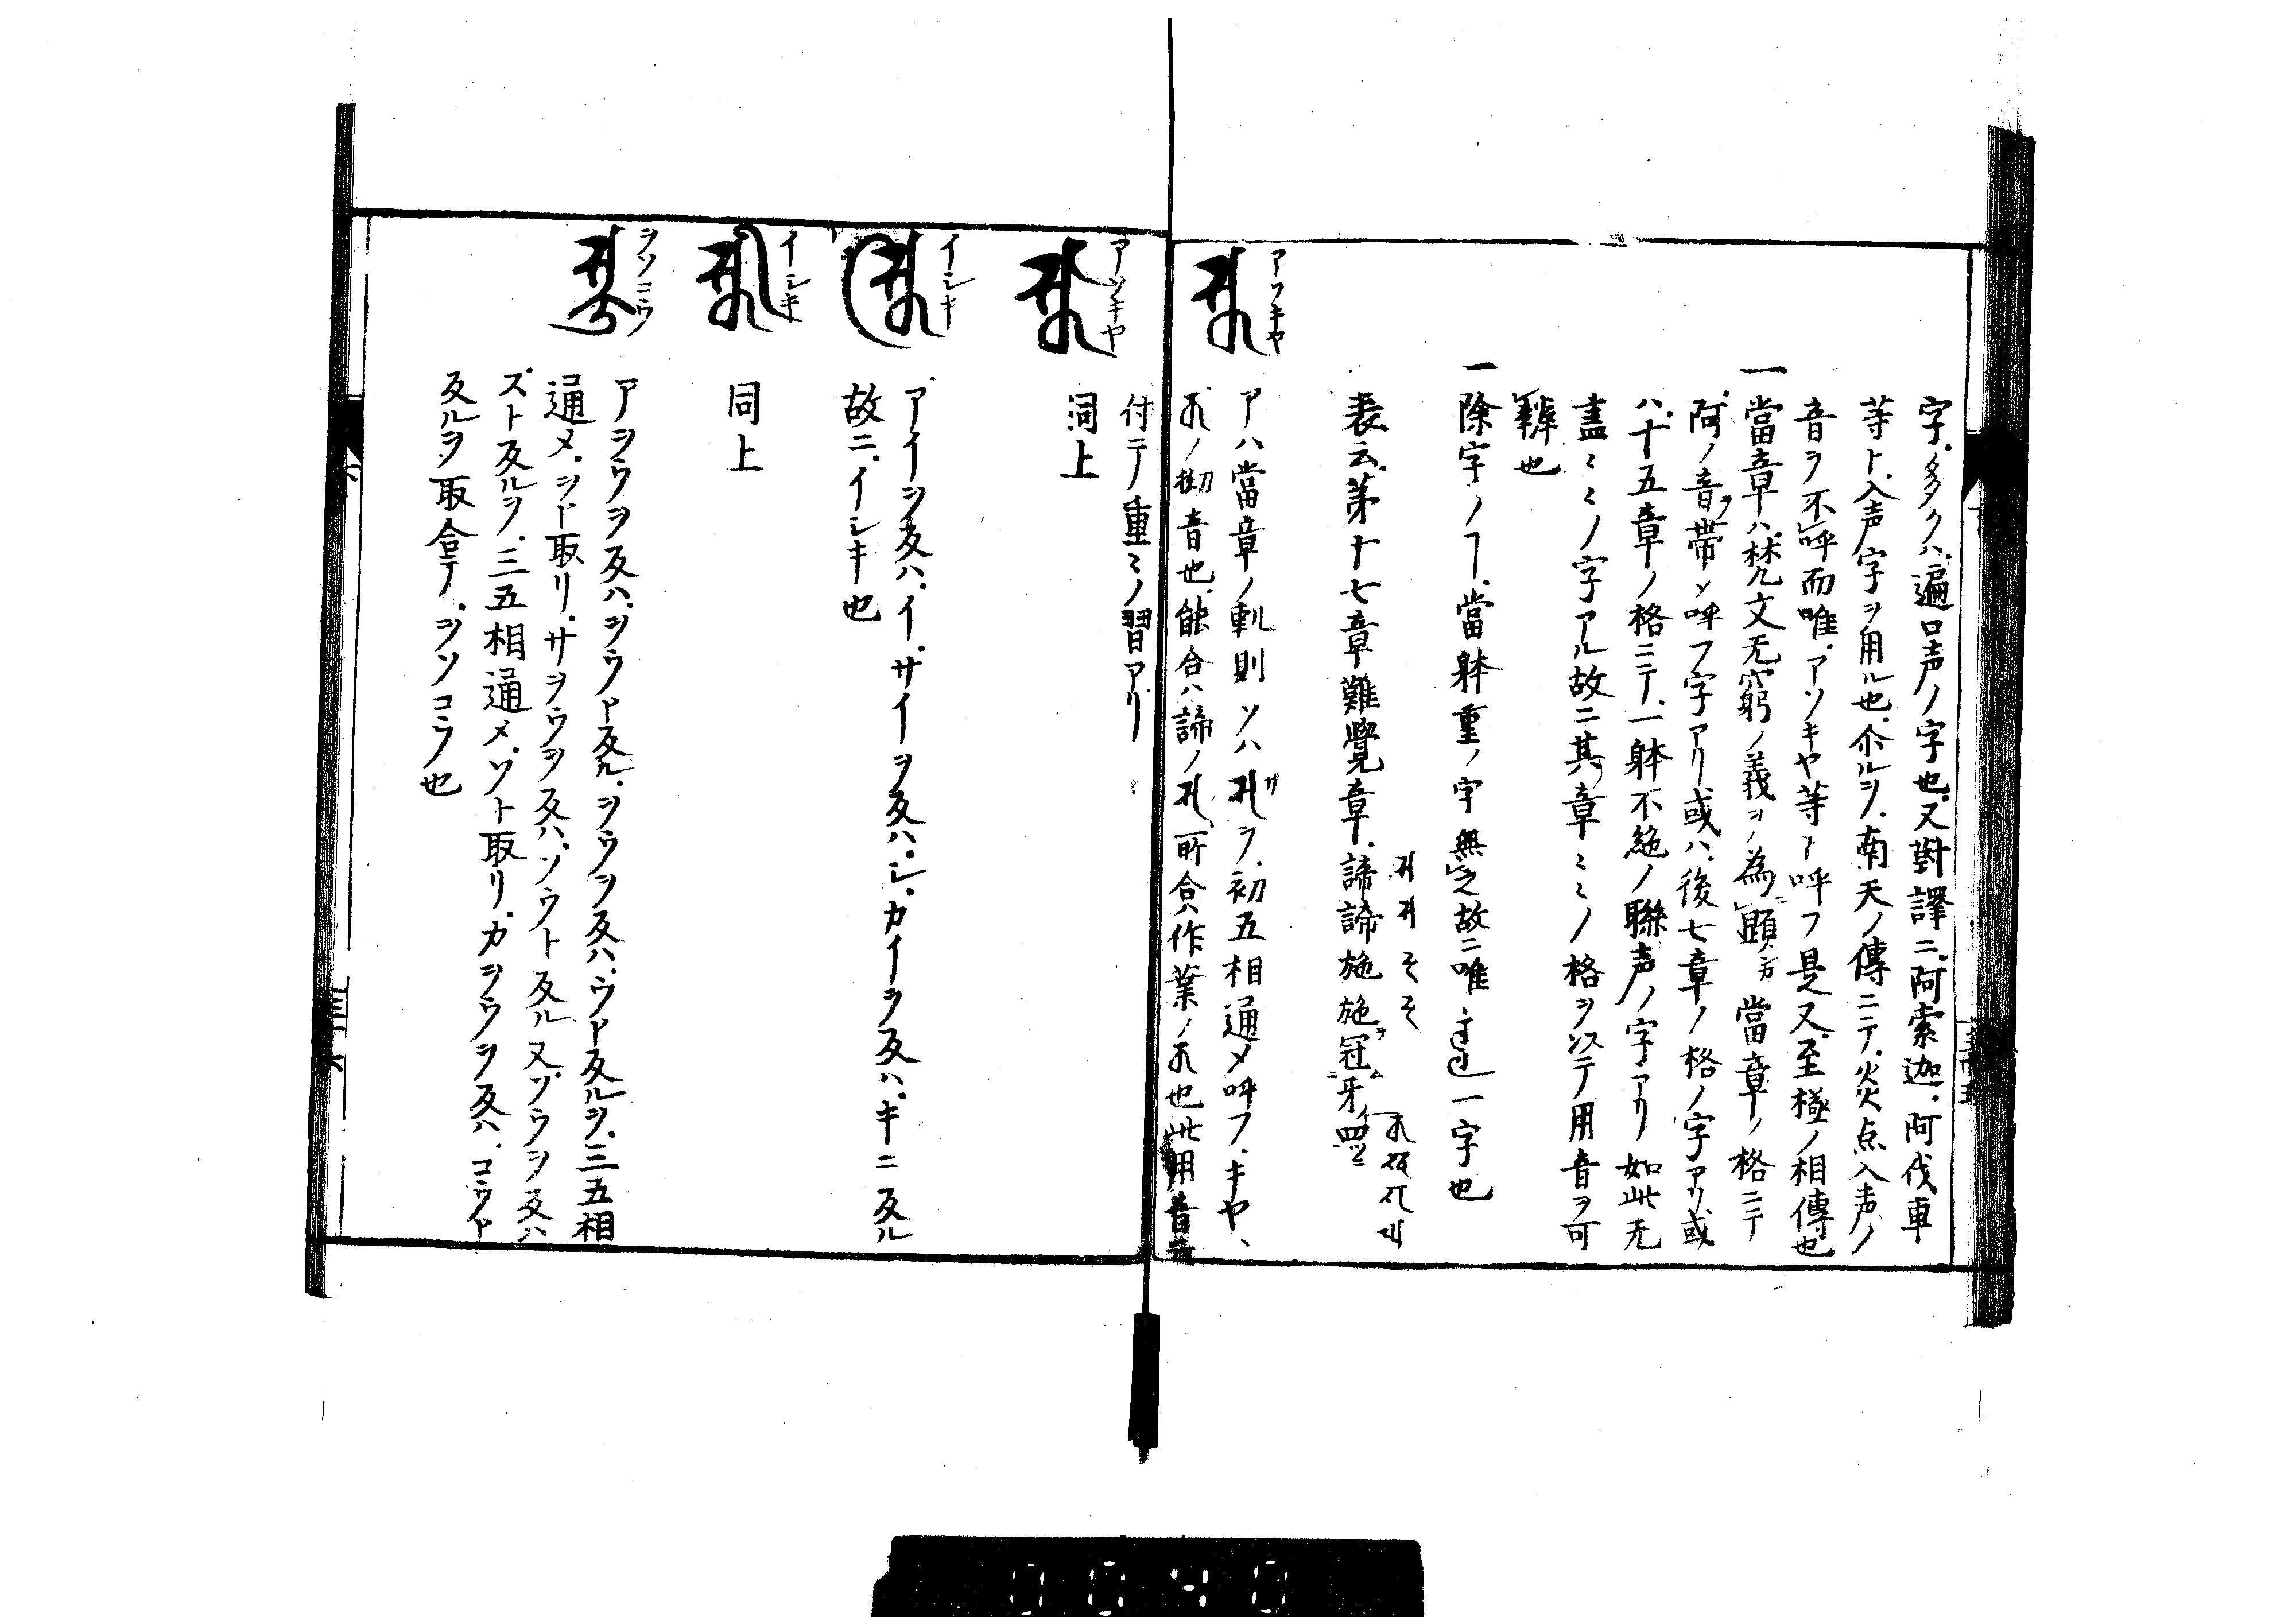 字.多クハ.遍口声ノ字也.又對譯ニ.阿索迦.阿伐車
等ト.入声字ヲ用ル也.尒ルヲ.南天ノ傳ニテ.炎点入声ノ
音ヲ不呼而唯.アソキヤ等ト呼フ是又.至極ノ相傳也
一當章ハ.梵文无窮ノ義ヲ為顕カ當章ノ格ニテ
阿ノ音ヲ帯メ呼フ字アリ或ハ.後七章ノ格ノ字アリ或
ハ.十五章ノ格ニテ.一躰不絶ノ聯声ノ字アリ如此无
盡ミミノ字アル故ニ其章ミミノ格ヲ以テ用音ヲ可
辨也
一除字ノヿ.當躰重ノ字無之故ニ唯一字也
表云.第十七章難覺章.諦諦施施冠牙四
アツキヤ
アハ當章ノ軌則ソハヲ.初五相通メ呼フ.キヤ、
ノ初音也.能合ハ諦ノ所合ハ作業ノ也此用音
付テノ重ミノ習アリ
アツキヤ
同上
イシキ
アイヲ反ハ.イ.サイヲ反ハ.シ.カイヲ反ハ.キニ反ル
故ニ.イシキ也
イシキ
同上
ヲソコウ
アヲウヲ反ハ.ヲウト反ル.ヲウヲ反ハ.ウト反ルヲ.三五相
通メ.ヲト取リ.サヲウヲ反ハ.ソウト反ル又ソウヲ反ハ
スト反ルヲ.三五相通メ.ソト取リ.カヲウヲ反ハ.コウト
反ルヲ取合テ.ヲソコウ也
下
三十六